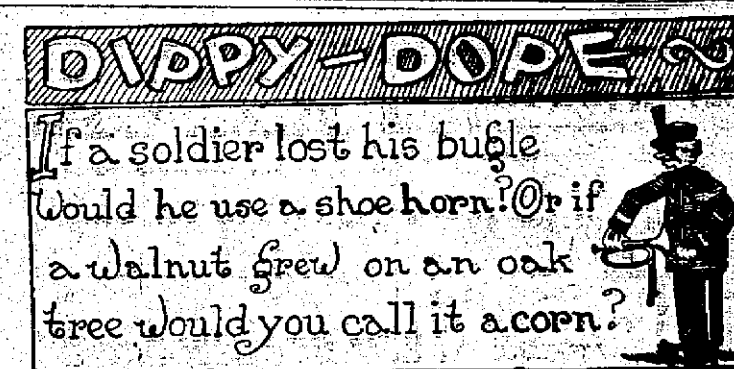 DIPPY-DOPE
If a soldier lost his bugle
Would he use a shoe horn? Or if
a walnut grew on an oak
tree would you call it acorn?